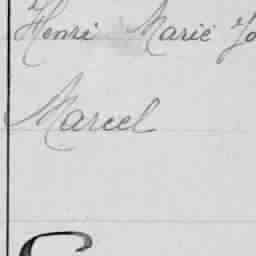 Henri Marie
Marcel